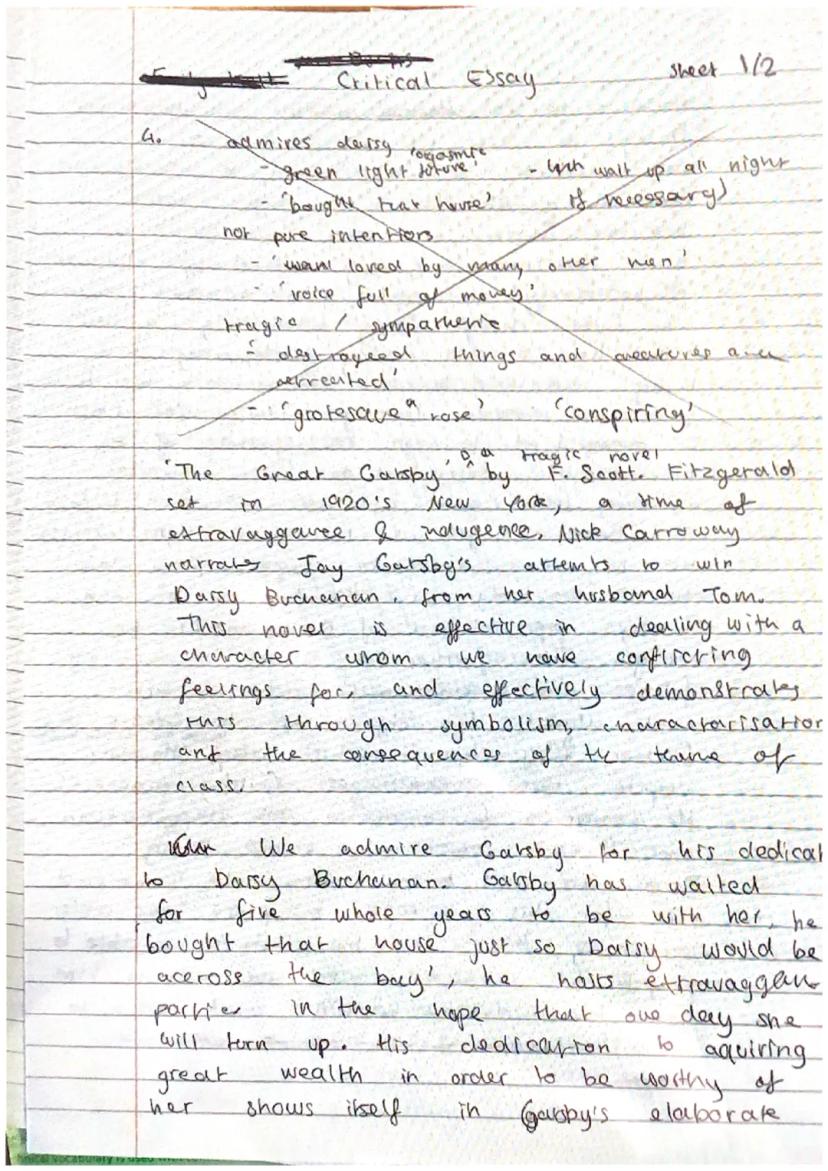 Critical Essay
Sheet 1/2
4. admires daisy
- green light 'orgasmic future' - will wait up all night if necessary)
- 'bought that house'
not pure intentions
- 'want loved by many other men'
- 'voice full of money'
tragic / sympathetic
- destroyeed things and creatures
- 'grotesque" rose' 'conspiring'
'The Great Gatsby' is a tragic novel by F. Scott. Fitzgerald
set in 1920's New York, a time of
extravaggance & indugence. Nick Carroway
narrates Jay Gatsby's attemts to win
Daisy Buchanan. from her husband Tom.
This novel is effective in dealing with a
character whom we have conflicting
feelings for, and effectively demonstrates
this through symbolism, characterisation
and the consequences of the theme of
class.
We admire Gatsby for his dedicat
to Daisy Buchanan. Gatsby has waited
for five whole years to be with her, he
'bought that house just so Daisy would be
aceross the bay', he hosts extravaggan
parties in the hope that one day she
will turn up. His dedication to aquiring
great wealth in order to be worthy of
her shows itself in Gatsby's elaborate